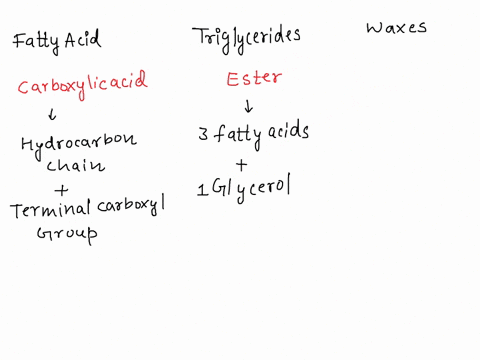 Fatty Acid
Carboxylic acid
↓
Hydrocarbon
chain
+
Terminal carboxyl
Group
Triglycerides
Ester
↓
3 fatty acids
+
1 Glycerol
Waxes